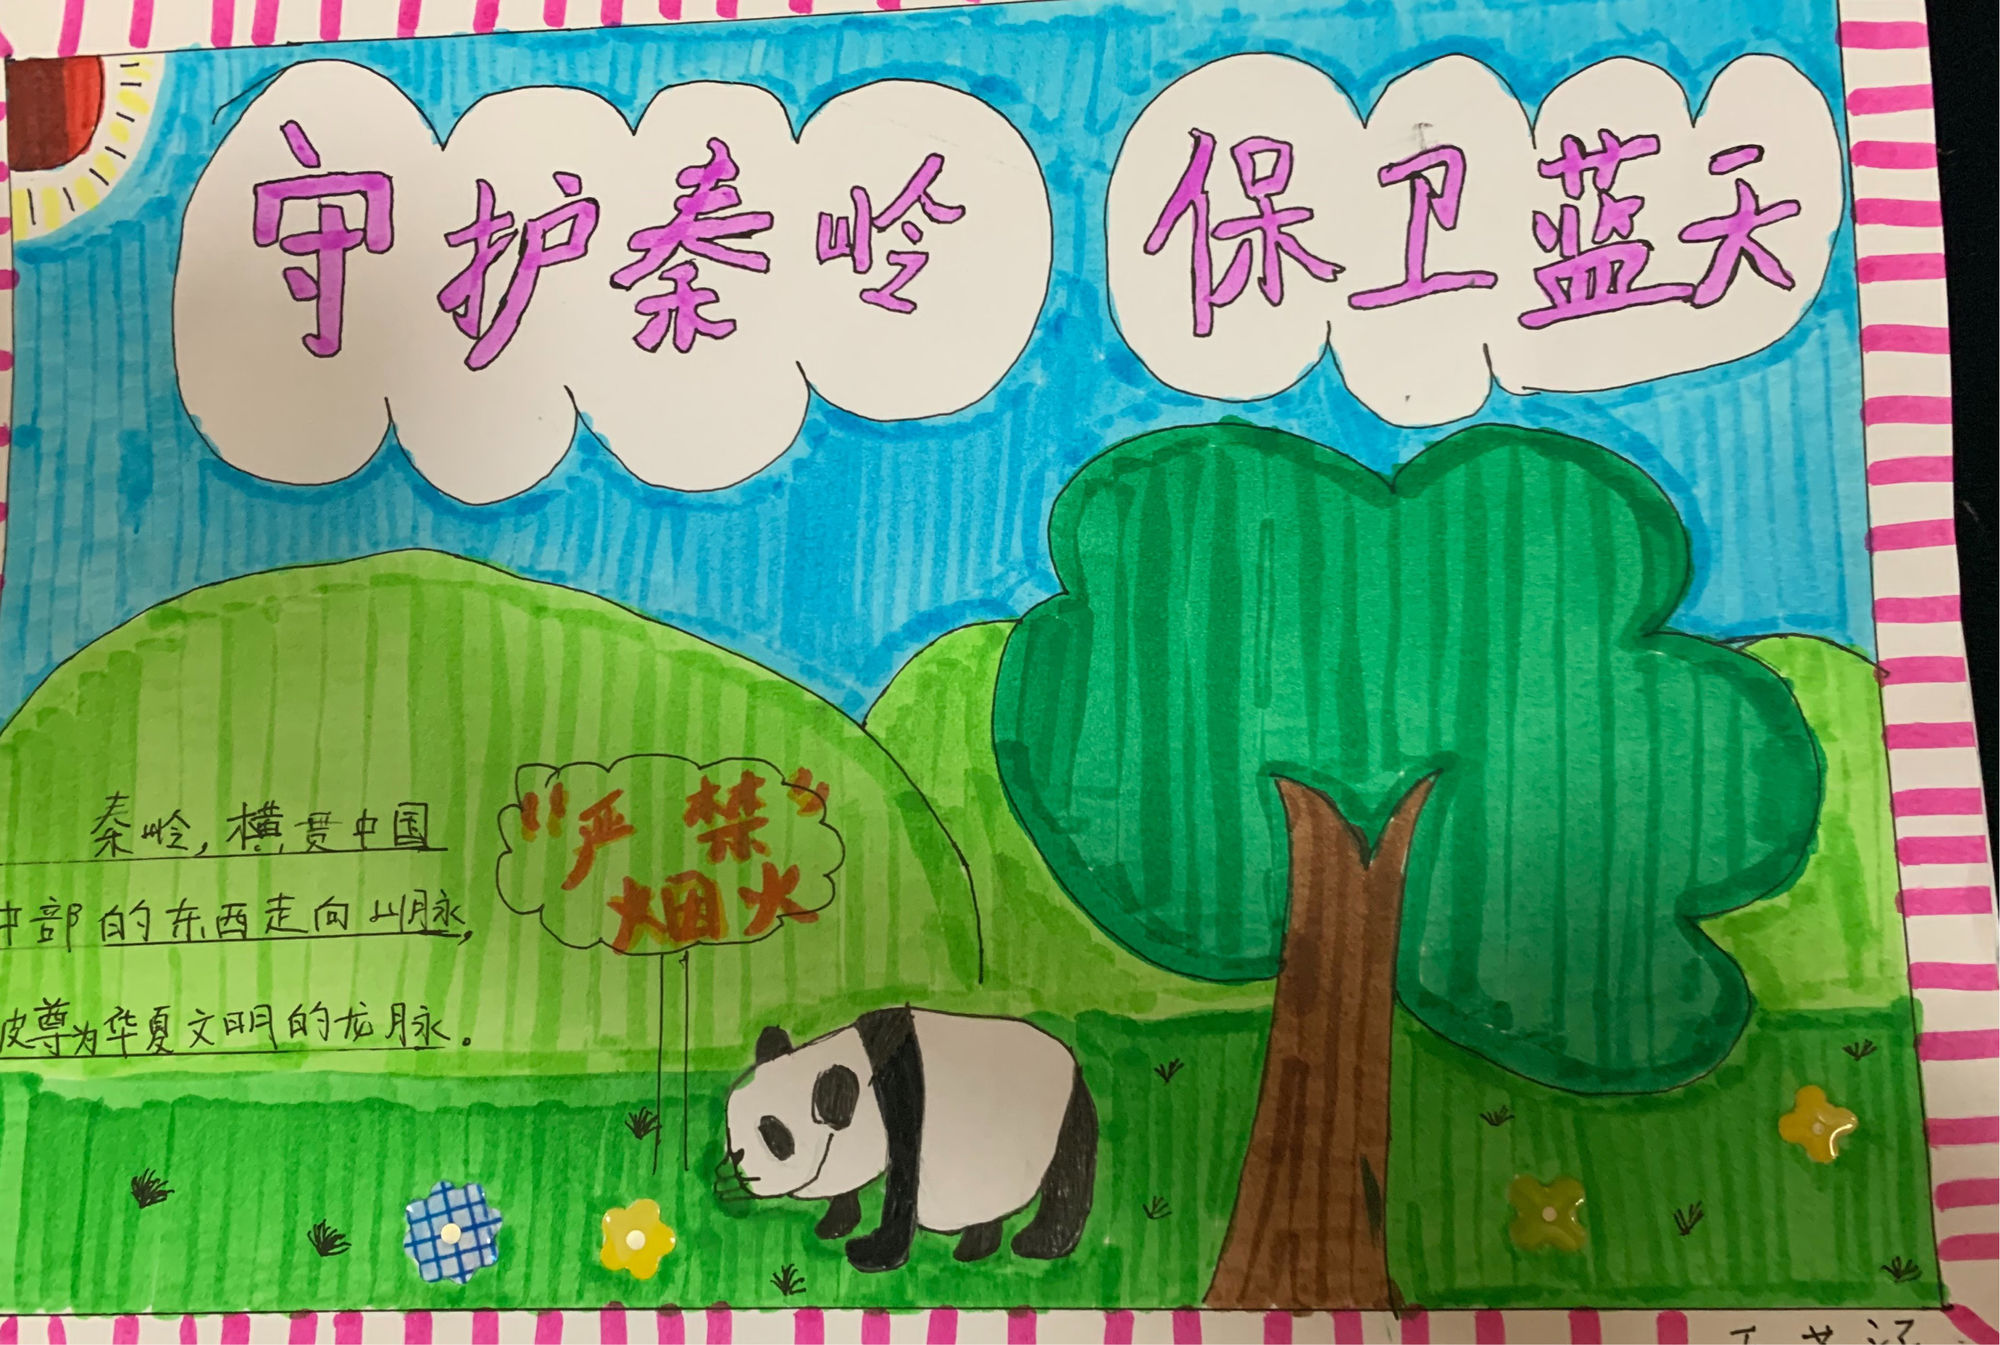 守护秦岭 保卫蓝天
"严禁"
烟火
秦岭,横贯中国
中部的东西走向山脉,
被尊为华夏文明的龙脉。